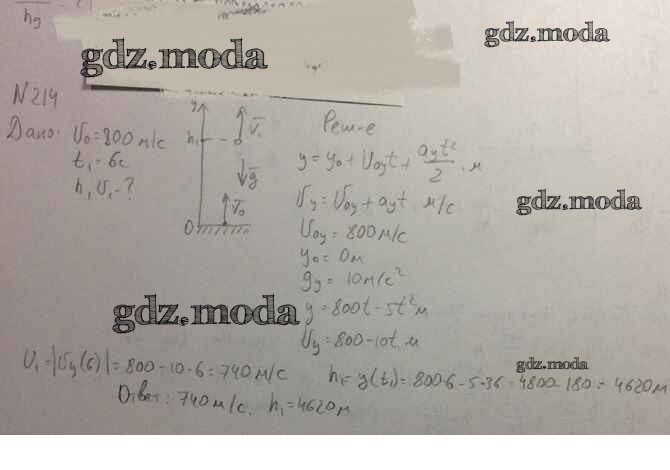 hg
gdz.moda
gdz.moda
N214
Дано:
V₀=800 м/с
t₁=6с
h, V₁-?
y
h₁
V₁
g
V₀
0
Реш-е
y=y₀+V₀yt+ayt²/2, м
Vy=V₀y+ayt м/с
V₀y=800м/с
y₀=0м
gy=10м/с²
y=800t-5t²м
Vy=800-10t м
gdz.moda
gdz.moda
gdz.moda
V₁=|Vy(6)|=800-10·6=740м/с
h₁=y(t₁)=800·6-5·36=4800-180=4620м
Ответ: 740м/с, h₁=4620м